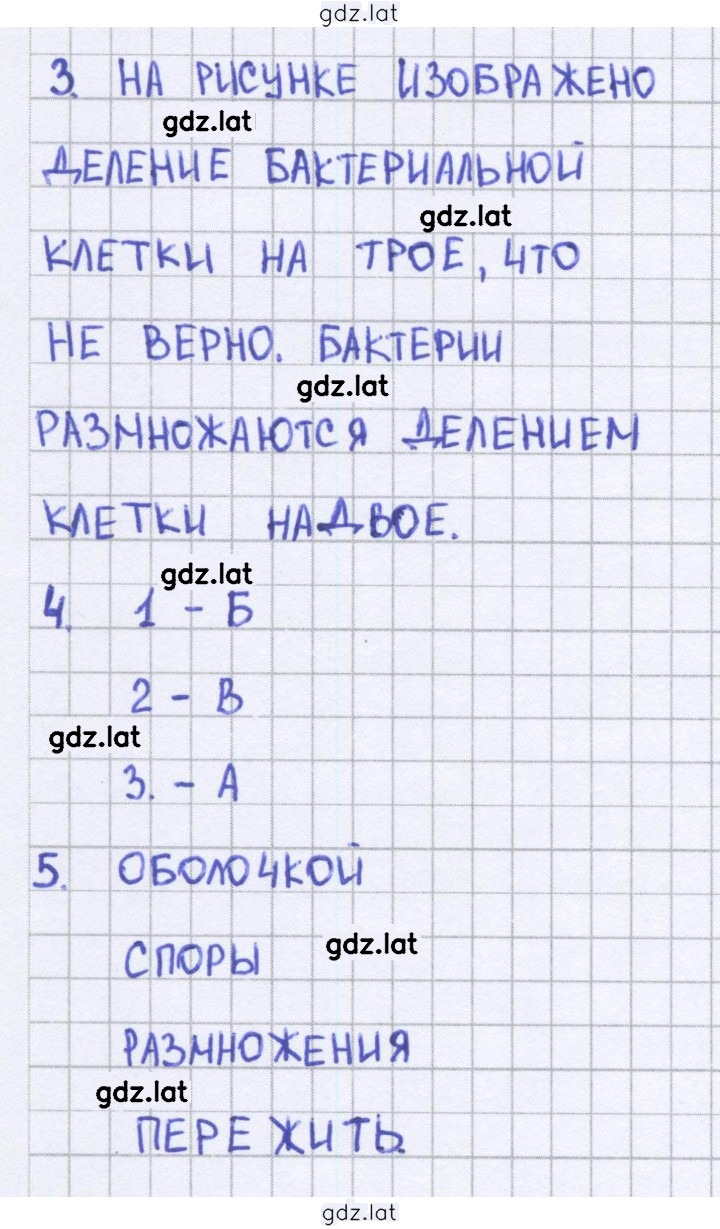 gdz.lat
3. НА РИСУНКЕ ИЗОБРАЖЕНО
gdz.lat
ДЕЛЕНИЕ БАКТЕРИАЛЬНОЙ
gdz.lat
КЛЕТКИ НА ТРОЕ, ЧТО
НЕ ВЕРНО. БАКТЕРИИ
gdz.lat
РАЗМНОЖАЮТСЯ ДЕЛЕНИЕМ
КЛЕТКИ НАДВОЕ.
gdz.lat
4. 1 - Б
2 - В
gdz.lat
3. - А
5. ОБОЛОЧКОЙ
gdz.lat
СПОРЫ
РАЗМНОЖЕНИЯ
gdz.lat
ПЕРЕЖИТЬ.
gdz.lat